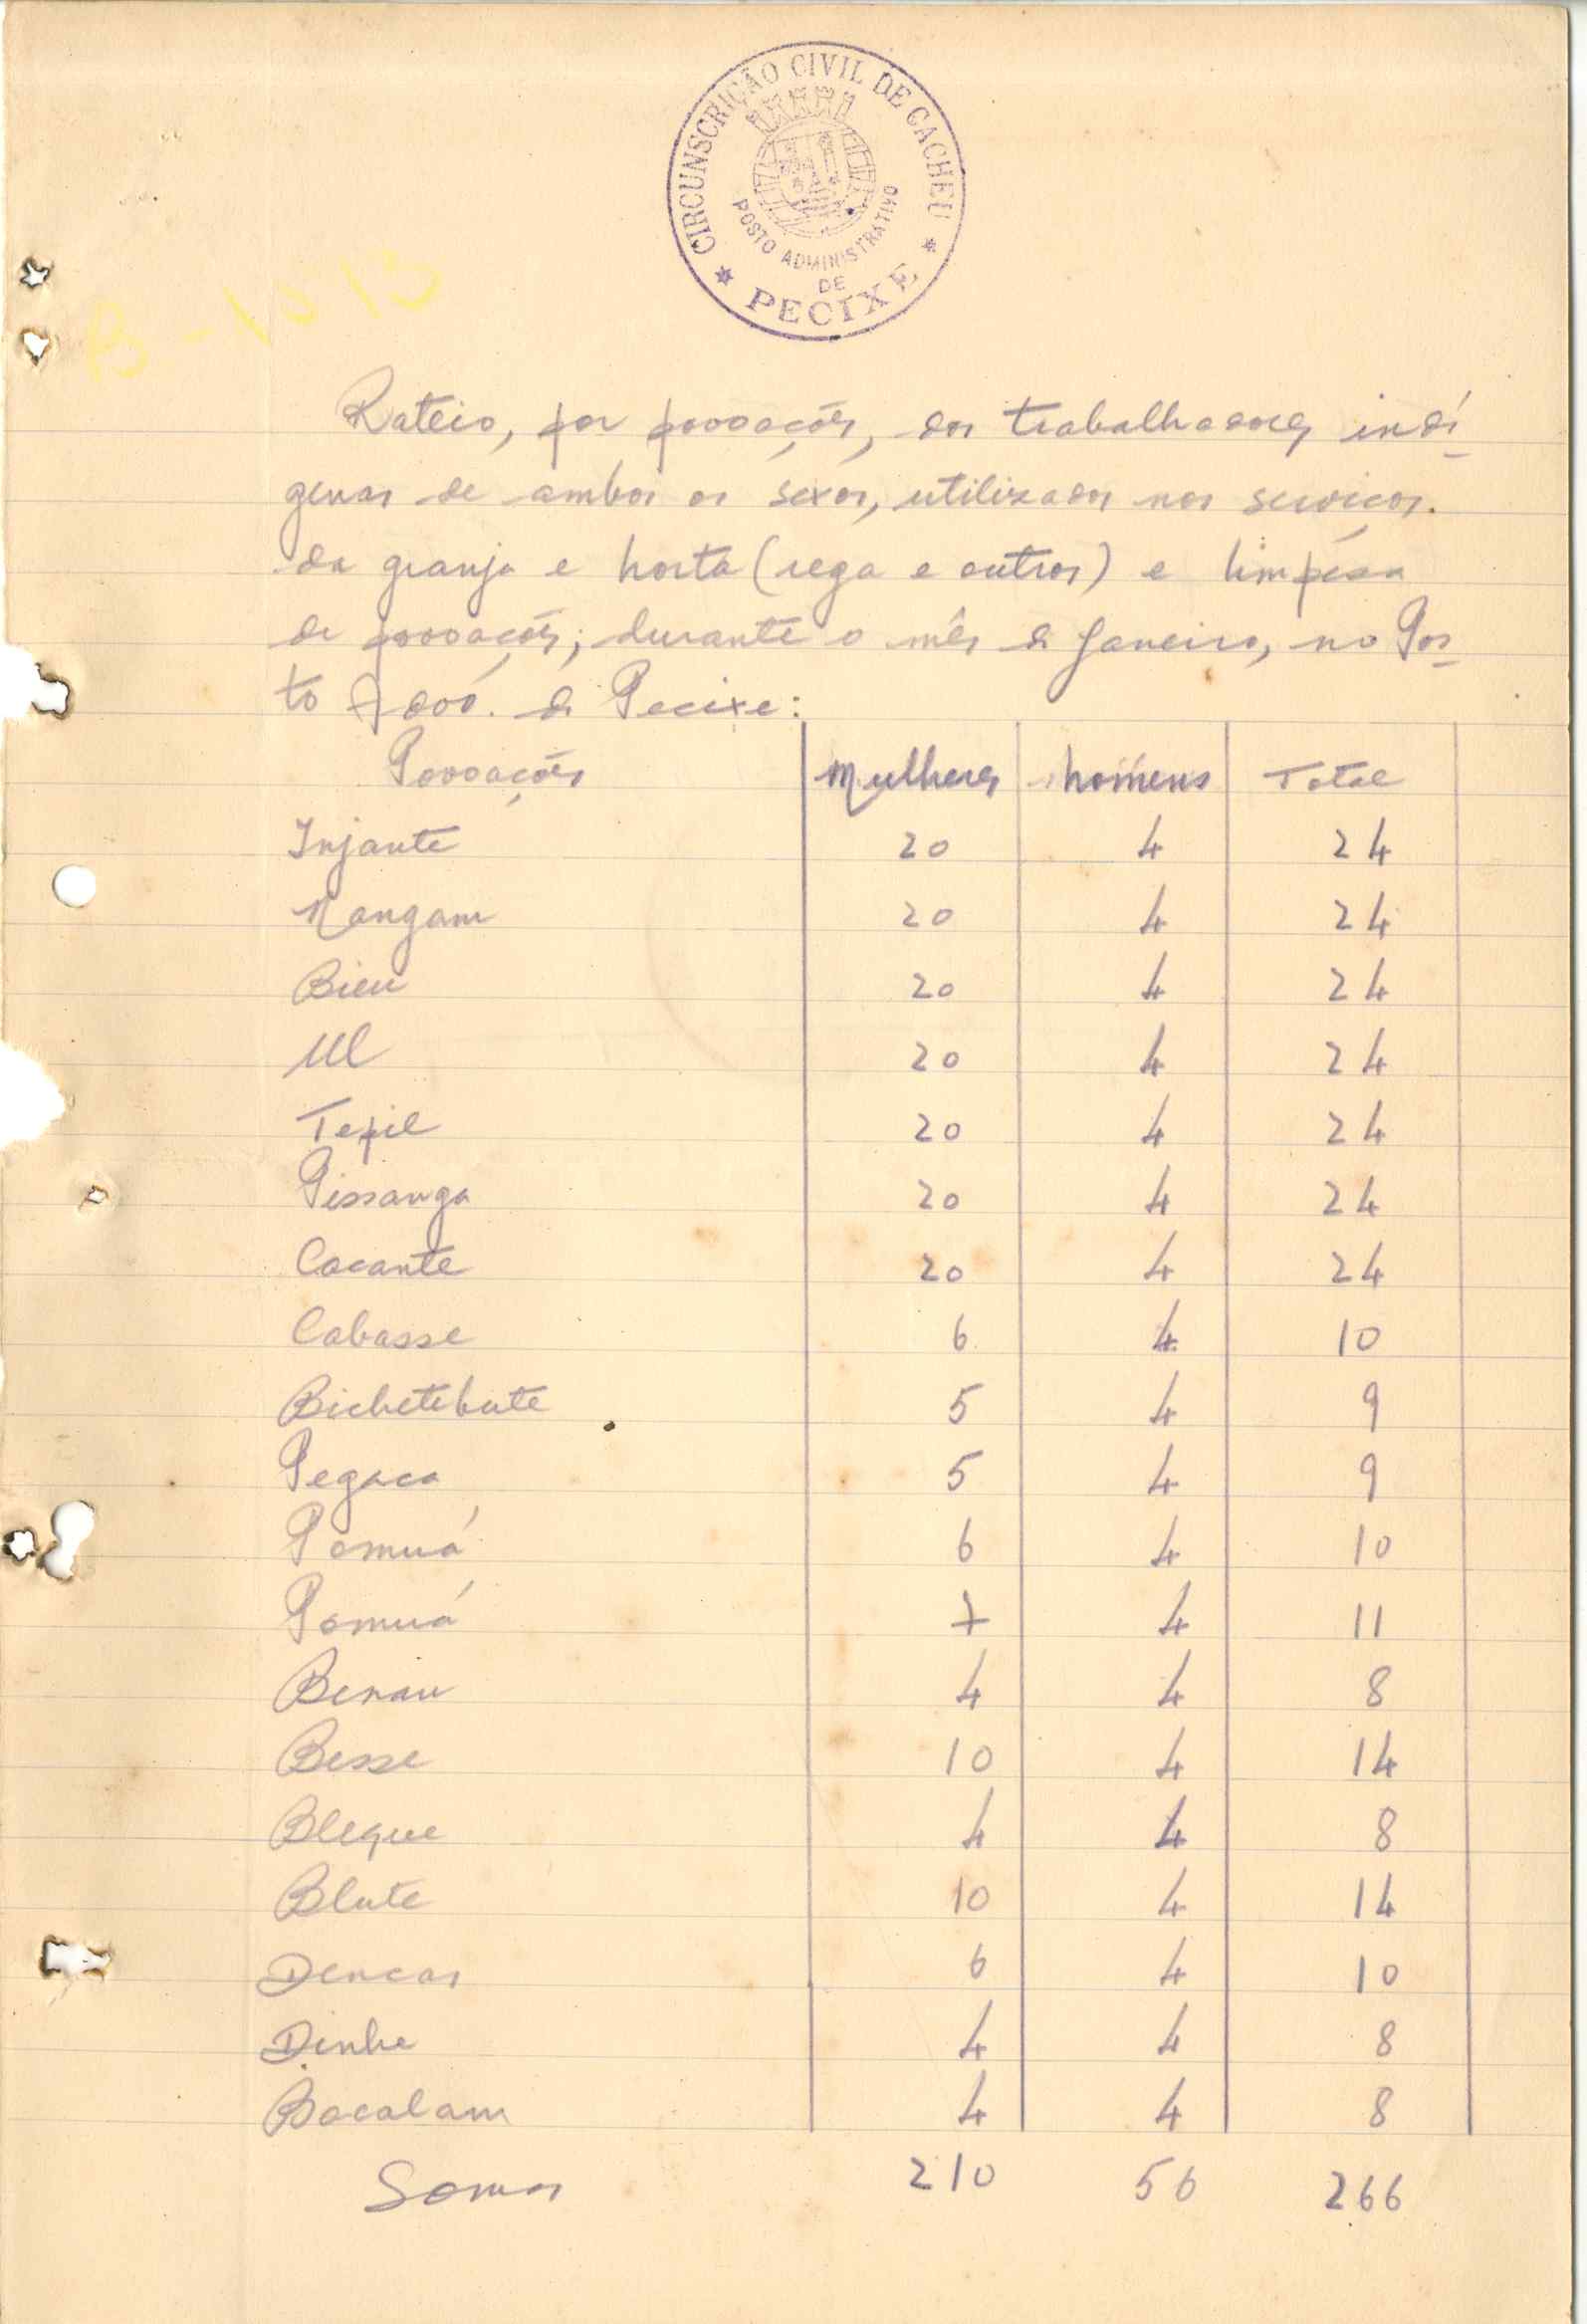 CIRCUNSCRIÇÃO CIVIL DE CACHEU
POSTO ADMINISTRATIVO
DE
PECIXE
B-1013
Rateio, por povoações, dos trabalhadores indí-
genas de ambos os sexos, utilizados nos serviços
da granja e horta (rega e outros) e limpêsa
de povoações, durante o mês de Janeiro, no Pos-
to Adov. de Pecixe:
Povoações Mulheres homens Total
Injante 20 4 24
Nangam 20 4 24
Bieu 20 4 24
Ul 20 4 24
Tepil 20 4 24
Pissanga 20 4 24
Cacante 20 4 24
Cabasse 6 4 10
Bichetebute 5 4 9
Pegaca 5 4 9
Pomuá 6 4 10
Pomuá 7 4 11
Benau 4 4 8
Besse 10 4 14
Bleque 4 4 8
Blute 10 4 14
Dencas 6 4 10
Dinhe 4 4 8
Bocalam 4 4 8
Somas 210 56 266